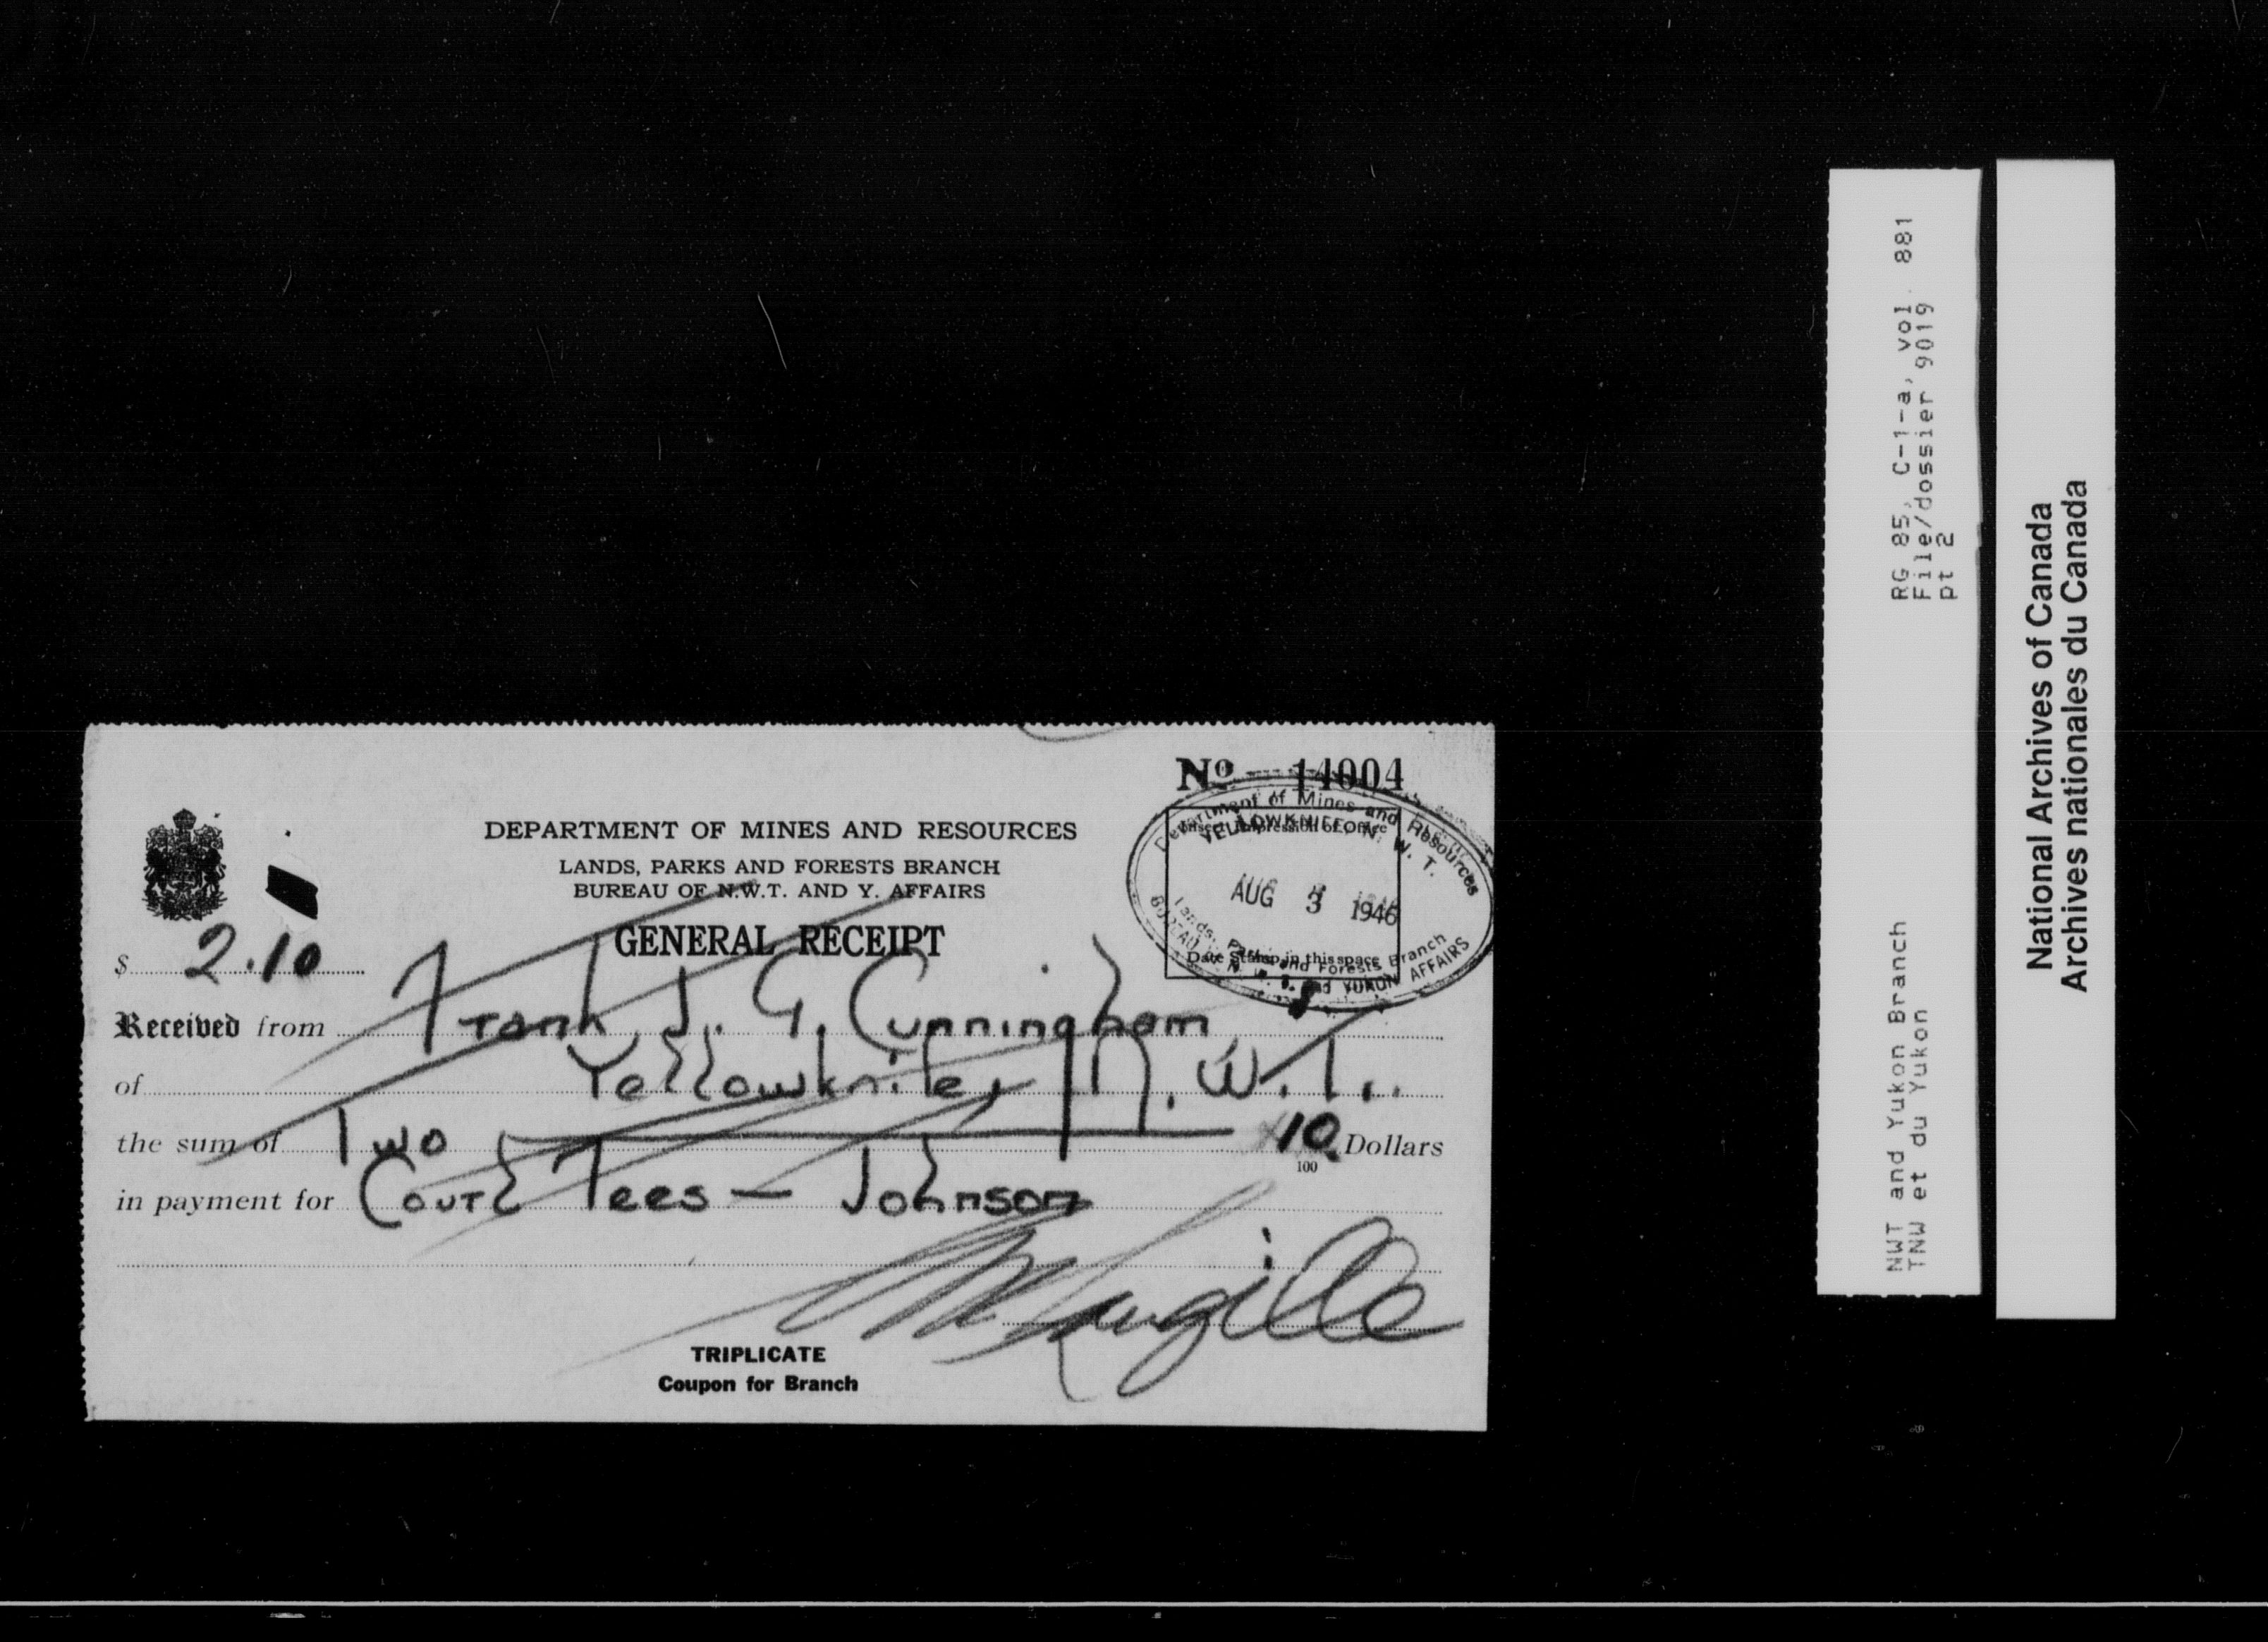 Nº 14004
DEPARTMENT OF MINES AND RESOURCES
LANDS, PARKS AND FORESTS BRANCH
BUREAU OF N.W.T. AND Y. AFFAIRS
GENERAL RECEIPT
Department of Mines and Resources
YELLOWKNIFE N. W. T.
AUG 3 1946
Date Stamp in this space
Lands, Parks and Forests Branch
BUREAU N. W. T. and YUKON AFFAIRS
$ 2.10
Received from Frank J. G. Cunningham
of Yellowknife, N. W. T.
the sum of Two 10/100 Dollars
in payment for Court Fees — Johnson
TRIPLICATE
Coupon for Branch
RG 85, C-1-a, vol. 881
File/dossier 9019
pt 2
NWT and Yukon Branch
TNW et du Yukon
National Archives of Canada
Archives nationales du Canada